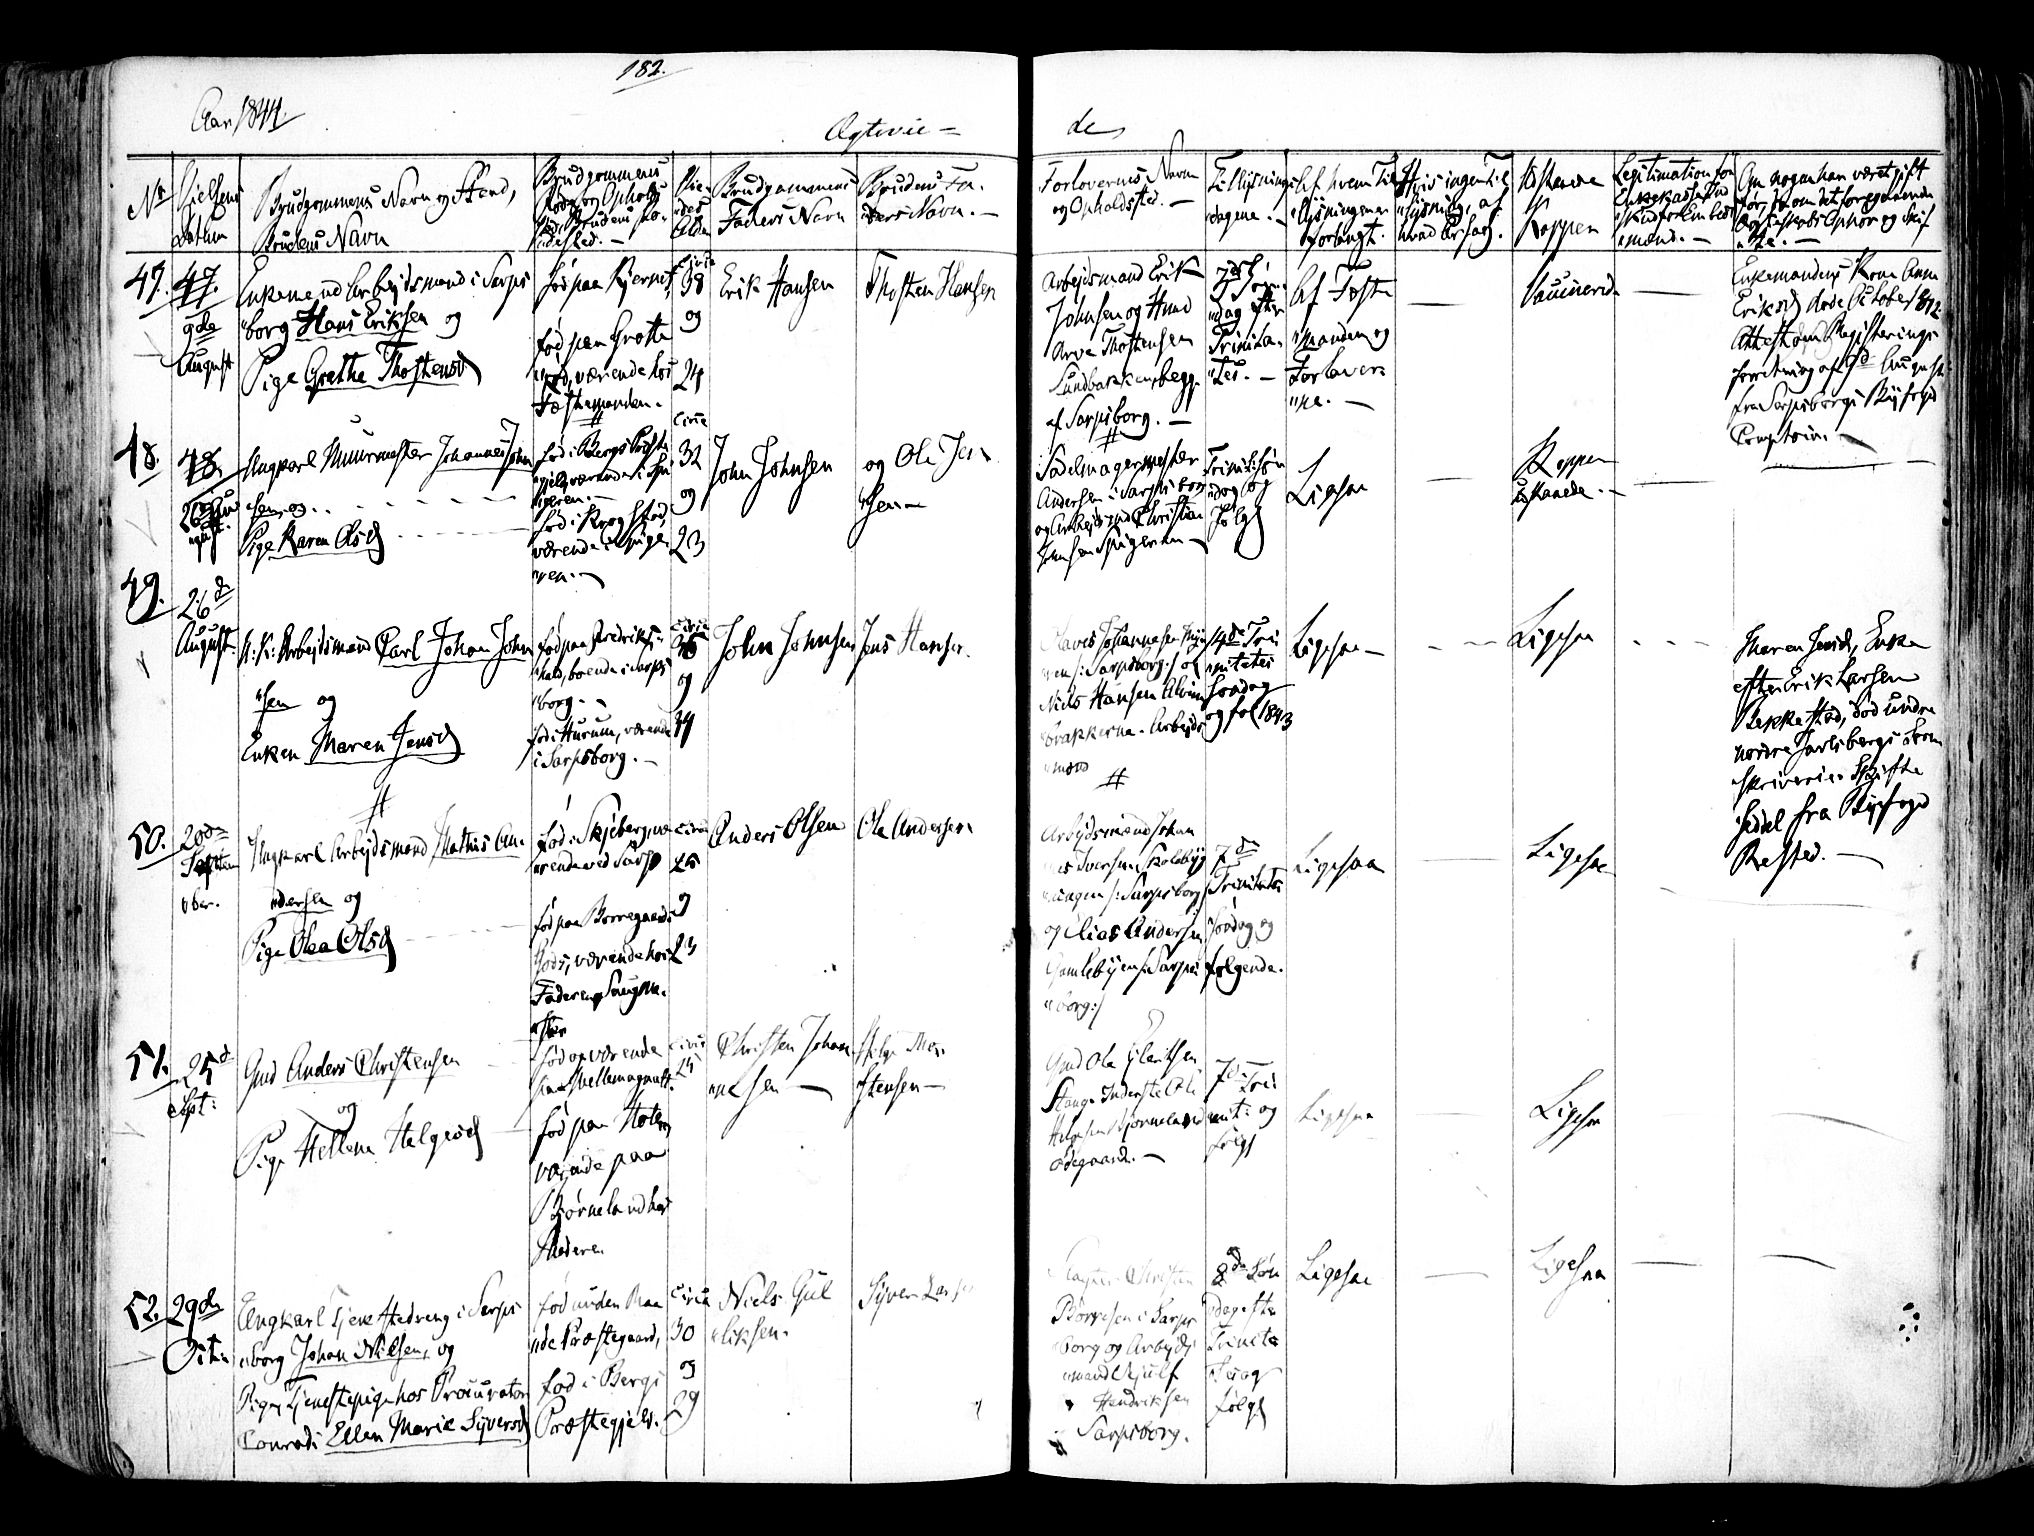 182.
Aar 1844.
Ægtevie =
de
No
Vielsens
Datum
Brudgommens Navn og Stand,
Brudens Navn
Brudgommens
Føde og Opholds
sted. Brudens Fø
"dested. —
Vie-
des
Alder
Brudgommens
Faders Navn
Brudens Fa-
ders Navn. —
Forlovernes Navn
og Opholdsted. —
Tillysnings
dagene. —
Af hvem Til
lysningerne
forlangt.
Hvis ingen Til
lysning, af
hvad Aarsag.
Kopper
Legitimation for
47.
47.
9de
August
Enkemand Arbeidsmand i Sarps
"borg Hans Eriksen og
Pige Grethe Thostensd
født paa Kjerne,
født paa Grotte
"rød, værende hos
Fæstemanden.
circa
38
og
24
Erik Hansen
Thosten Hansen
Arbeidsmand Erik
Johnsen og Smed
Arve Thostensen
Sundbakken, begge
af Sarpsborg. —
7de Søn
"dag efter
Trinita-
"tis. —
Af Fæste
"manden og
Forlover
"ne. —
Vaccinerede
Enkemandens Kone Anne
Eriksd døde October 1842
Attest om Registerings
forretning af 9de August
fra Sarpsborgs Byfoged
Comptoir. —
48.
48.
26 Au
gust.
Ungkarl Muurmester Johannes John
"sen og
Pige Karen Olsd
født i Bergs Præste
gjeld, værende i Spi
geren. —
født i Krogstad,
værende i Spige
"ren. —
circa
32
og
23
John Johnsen
og Ole Jen
"sen —
Sadelmagermester
Andersen i Sarpsborg
og Arbeidsmd Christian
Jensen Spigeren —
Trinit: Søn
"dag og
følg
Ligesaa
Kopper
"havende. —
49.
26d
August.
U: K: Arbeidsmand Carl Johan John
"sen og
Enken Maren Jensd
født paa Fredriks-
"hald, boende i Sarps
"borg. —
født i Hurum, værende
i Sarpsborg. —
circa
36
og
44
John Johnsen
Jens Hansen
"ven /: Sarpsborg :/ og
Niels Hansen Alvim
brakkerne. Arbeids
"mænd
14de Tri
"nitatis
Søndag
og føl 1843
Ligesaa —
Ligesaa
Maren Jensd, Enke
efter Erik Larsen
Løkkestad, død under
nordre Jarlsbergs Soren
skriverie. Skifte
seddel fra Byfoged
Refsted. —
50.
20de
Septem
"ber.
Ungkarl Arbeidsmand Mathis An-
"dersen og
Pige Olea Olsd
født i Skjeberg, væ
"rende ved Sarps
født paa Borregaards
Gods, værende hos
Faderen, Saugme-
"ster
circa
25
og
23
Anders Olsen
Ole Andersen
Arbeidsmand Johan
"nes Iversen Skolebyg
"ningen /: Sarpsborg
og Elias Andersen
Gamlebyen /: Sarps
"borg :/
7de
Trinitatis
Søndag og
følgende.
Ligesaa
Ligesaa
51.
25d
Sept:
Gmd Anders Christensen
og
Pige Hellene Helgesd
født og værende
født paa Holen
værende paa
Bjørneland hos
Moderen
circa
25
Christen Johan
"nesen —
Helge Mor-
"tensen —
Gmd Ole Eilertsen
Stange Inderste Ole
Helgesen Bjørneland
ødegaard. —
7de Tri
"nit: og
følg
Ligesaa
Ligesaa
52.
29de
Oct.
Ungkarl Tjenestedreng i Sarps
"borg Johan Nilsen, og
Pigen Tjenestepige hos Procurator
Conradi Ellen Marie Syversd
født under Raa
"de Præstegaard,
født i Bergs
Præstegjeld.
circa
30
og
29
Niels Gul
"liksen.
Syver Larsen
Christen
Børresen i Sarps
borg og Arbeids
"mand Kjulf
Hendriksen
Sarpsborg.
8de Søn
"dag efter
Trinita
"tis og
følg
Ligesaa
Ligesaa